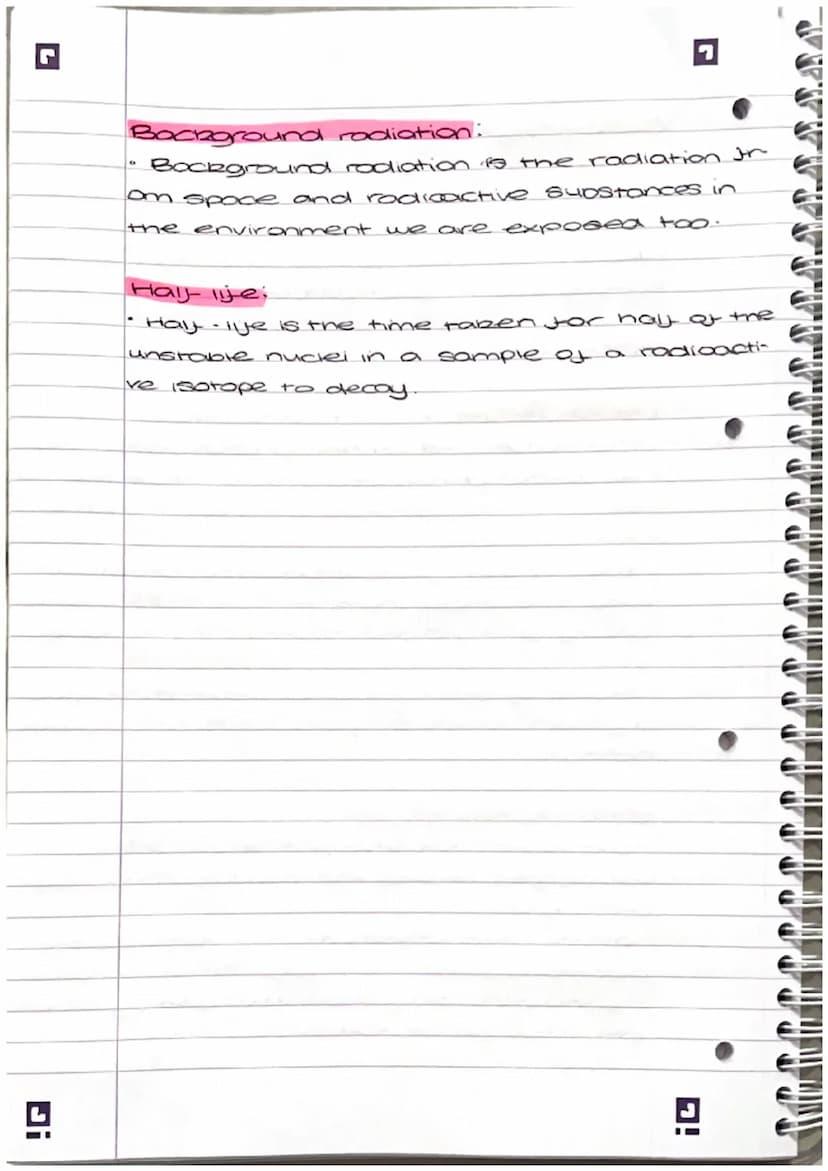 Background radiation:
• Background radiation is the radiation fr-
om space and radioactive substances in
the environment we are exposed too.
Half life:
• Half-life is the time taken for half of the
unstable nuclei in a sample of a radioacti-
ve isotope to decay.